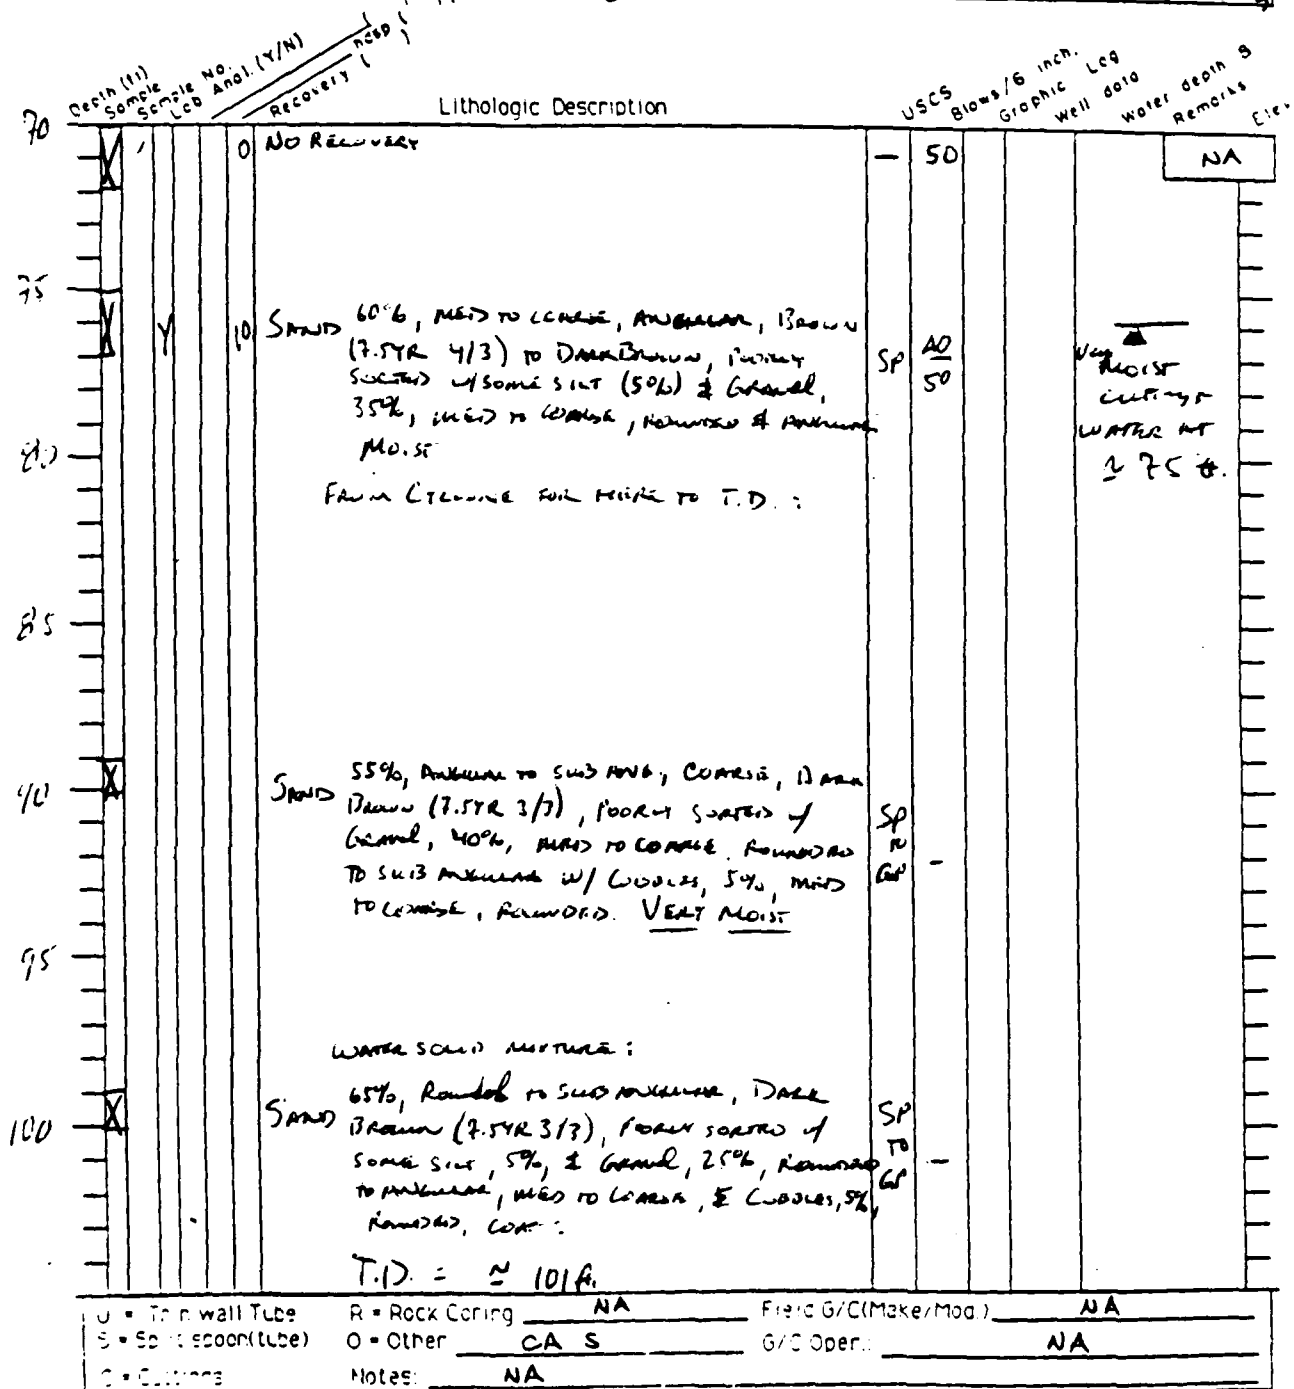 Depth (ft)
Sample
Sample No.
Lab Anal. (Y/N)
Recovery (
Lithologic Description
USCS
Blows/6 inch.
Graphic Log
Well data
Water depth &
Remarks
70
0 NO RECOVERY — 50 NA
75
Y 10 SAND 60%, MED TO COARSE, ANGULAR, BROWN
(7.5YR 4/3) TO DARK BROWN, POORLY
SORTED W/ SOME SILT (5%) & GRAVEL,
35%, MED TO COARSE, ROUNDED & ANGULAR
MOIST
SP 40
50
Very
MOIST
cuttings
WATER AT
≃ 75 ft.
80
FROM CYCLONE FOR HERE TO T.D. :
85
90
SAND 55%, ANGULAR TO SUB ANG., COARSE, DARK
BROWN (7.5YR 3/3), POORLY SORTED W/
GRAVEL, 40%, MED TO COARSE. ROUNDED
TO SUB ANGULAR W/ COBBLES, 5%, MED
TO COARSE, ROUNDED. VERY MOIST
SP
TO
GP -
95
WATER SOLID MIXTURE :
100
SAND 65%, Rounded TO SUB ANGULAR, DARK
BROWN (7.5YR 3/3), POORLY SORTED W/
SOME SILT, 5%, & GRAVEL, 25%, ROUNDED
TO ANGULAR, MED TO COARSE, & COBBLES, 5%,
ROUNDED,
SP
TO
GP -
T.D. = ≃ 101 ft.
U = Thin wall Tube R = Rock Coring NA Field G/C(Make/Mod.) NA
S = Split spoon(tube) O = Other CA S G/C Oper.: NA
C = Cuttings Notes: NA